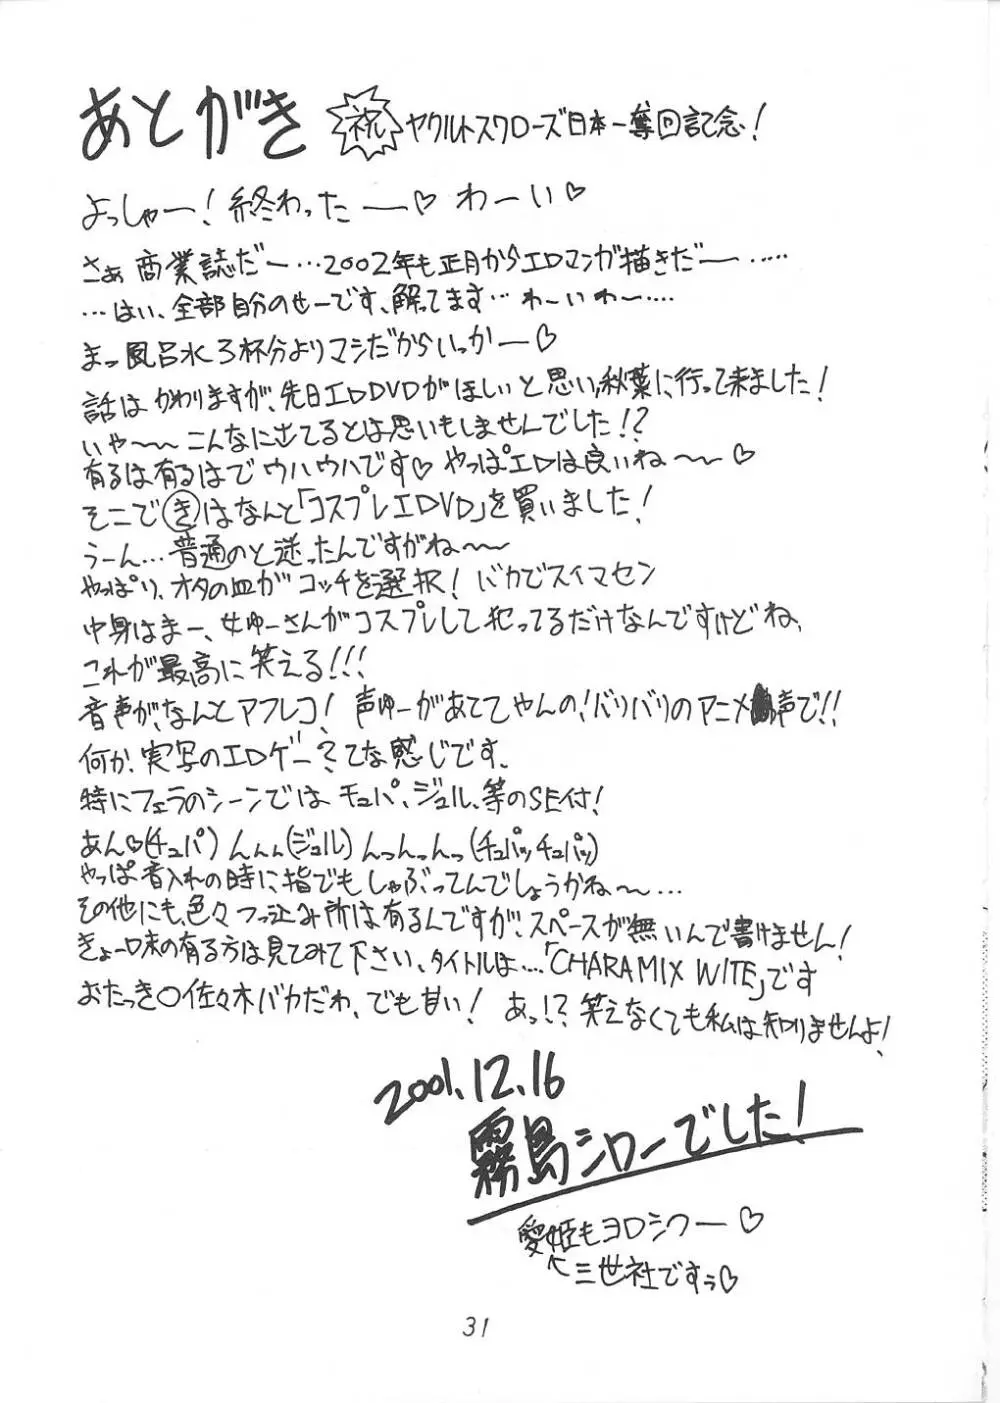 あとがき 祝 ヤクルトスワローズ日本一奪回記念!
よっしゃー!終わったー♡ わーい♡
さぁ商業誌だー…2002年も正月からエロマンガ描きだー……
…はい、全部自分のせーです、解ってます… わーいわー……
まっ風呂水3杯分よりマシだからいっかー♡
話はかわりますが、先日エロDVDがほしいと思い、秋葉に行って来ました!
いや〜〜こんなに出てるとは思いもしませんでした!?
有るは有るはでウハウハです♡ やっぱエロは良いね〜〜♡
そこで(き)はなんと「コスプレエロDVD」を買いました!
うーん…普通のと迷ったんですがね〜〜
やっぱり、オタの血がコッチを選択! バカでスイマセン
中身はまー、女ゆーさんがコスプレして犯ってるだけなんですけどね、
これが最高に笑える!!!
音声が、なんとアフレコ! 声ゆーがあててやんの!バリバリのアニメ声で!!
何か、実写のエロゲー?てな感じです、
特にフェラのシーンではチュパ、ジュル、等のSE付!
あん♡(チュパ) んんん(ジュル) んっんっんっ(チュパッチュパッ)
やっぱ音入れの時に指でもしゃぶってんでしょうかね〜…
その他にも、色々ツッ込み所は有るんですが、スペースが無いんで書けません!
きょー味の有る方は見てみて下さい、タイトルは…「CHARAMIX WITE」です
おたっき○佐々木バカだわ、でも甘い! あっ!?笑えなくても私は知りませんよ!
2001.12.16
霧島シローでした!
愛姫もヨロシクー♡
三世社ですぅ♡
31